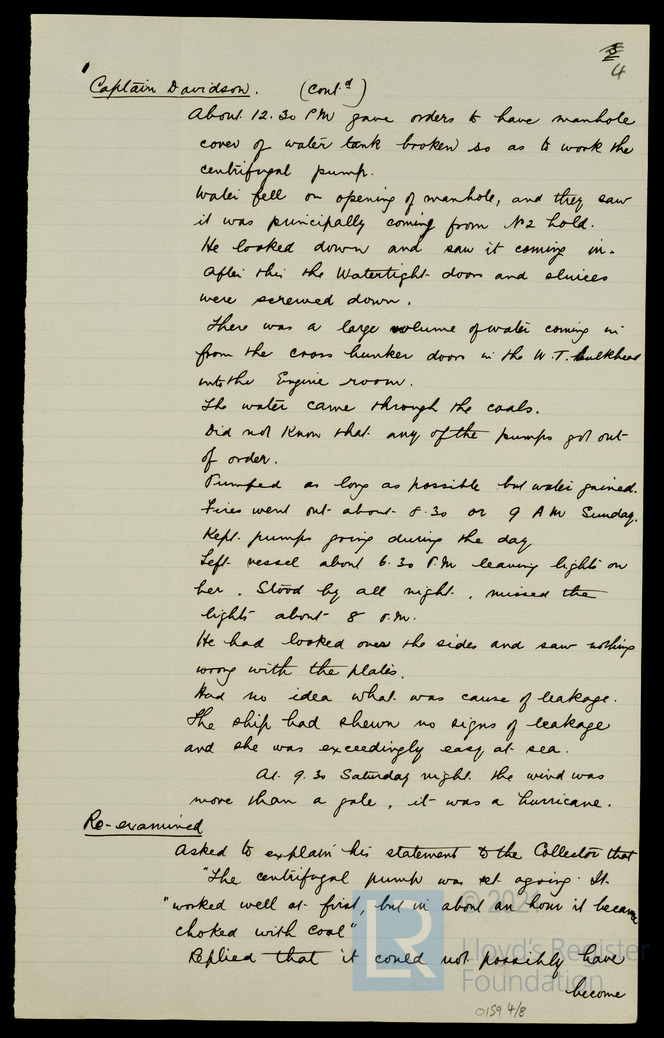 4
Captain Davidson. (Contd)
About 12.30 PM gave orders to have manhole
cover of water tank broken so as to work the
centrifugal pump.
Water fell on opening of manhole, and they saw
it was principally coming from No2 hold.
He looked down and saw it coming in.
After this the Watertight doors and sluices
were screwed down.
There was a large volume of water coming in
from the cross bunker doors in the W.T. bulkhead
into the Engine room.
The water came through the coals.
Did not know that any of the pumps got out
of order.
Pumped as long as possible but water gained.
Fires went out about 8.30 or 9 AM Sunday.
Kept pumps going during the day
Left vessel about 6.30 P.M leaving lights on
her. Stood by all night, missed the
lights about 8 P.M.
He had looked over the sides and saw nothing
wrong with the plates.
Had no idea what was cause of leakage.
The ship had shewn no signs of leakage
and she was exceedingly easy at sea.
At 9.30 Saturday night the wind was
more than a gale, it was a hurricane.
Re-examined
Asked to explain his statement to the Collector that
"The centrifugal pump was set agoing. It
"worked well at first, but in about an hour it became
choked with coal"
Replied that it could not possibly have
become
© 2021
LR
Lloyd's Register
Foundation
0159 4/8